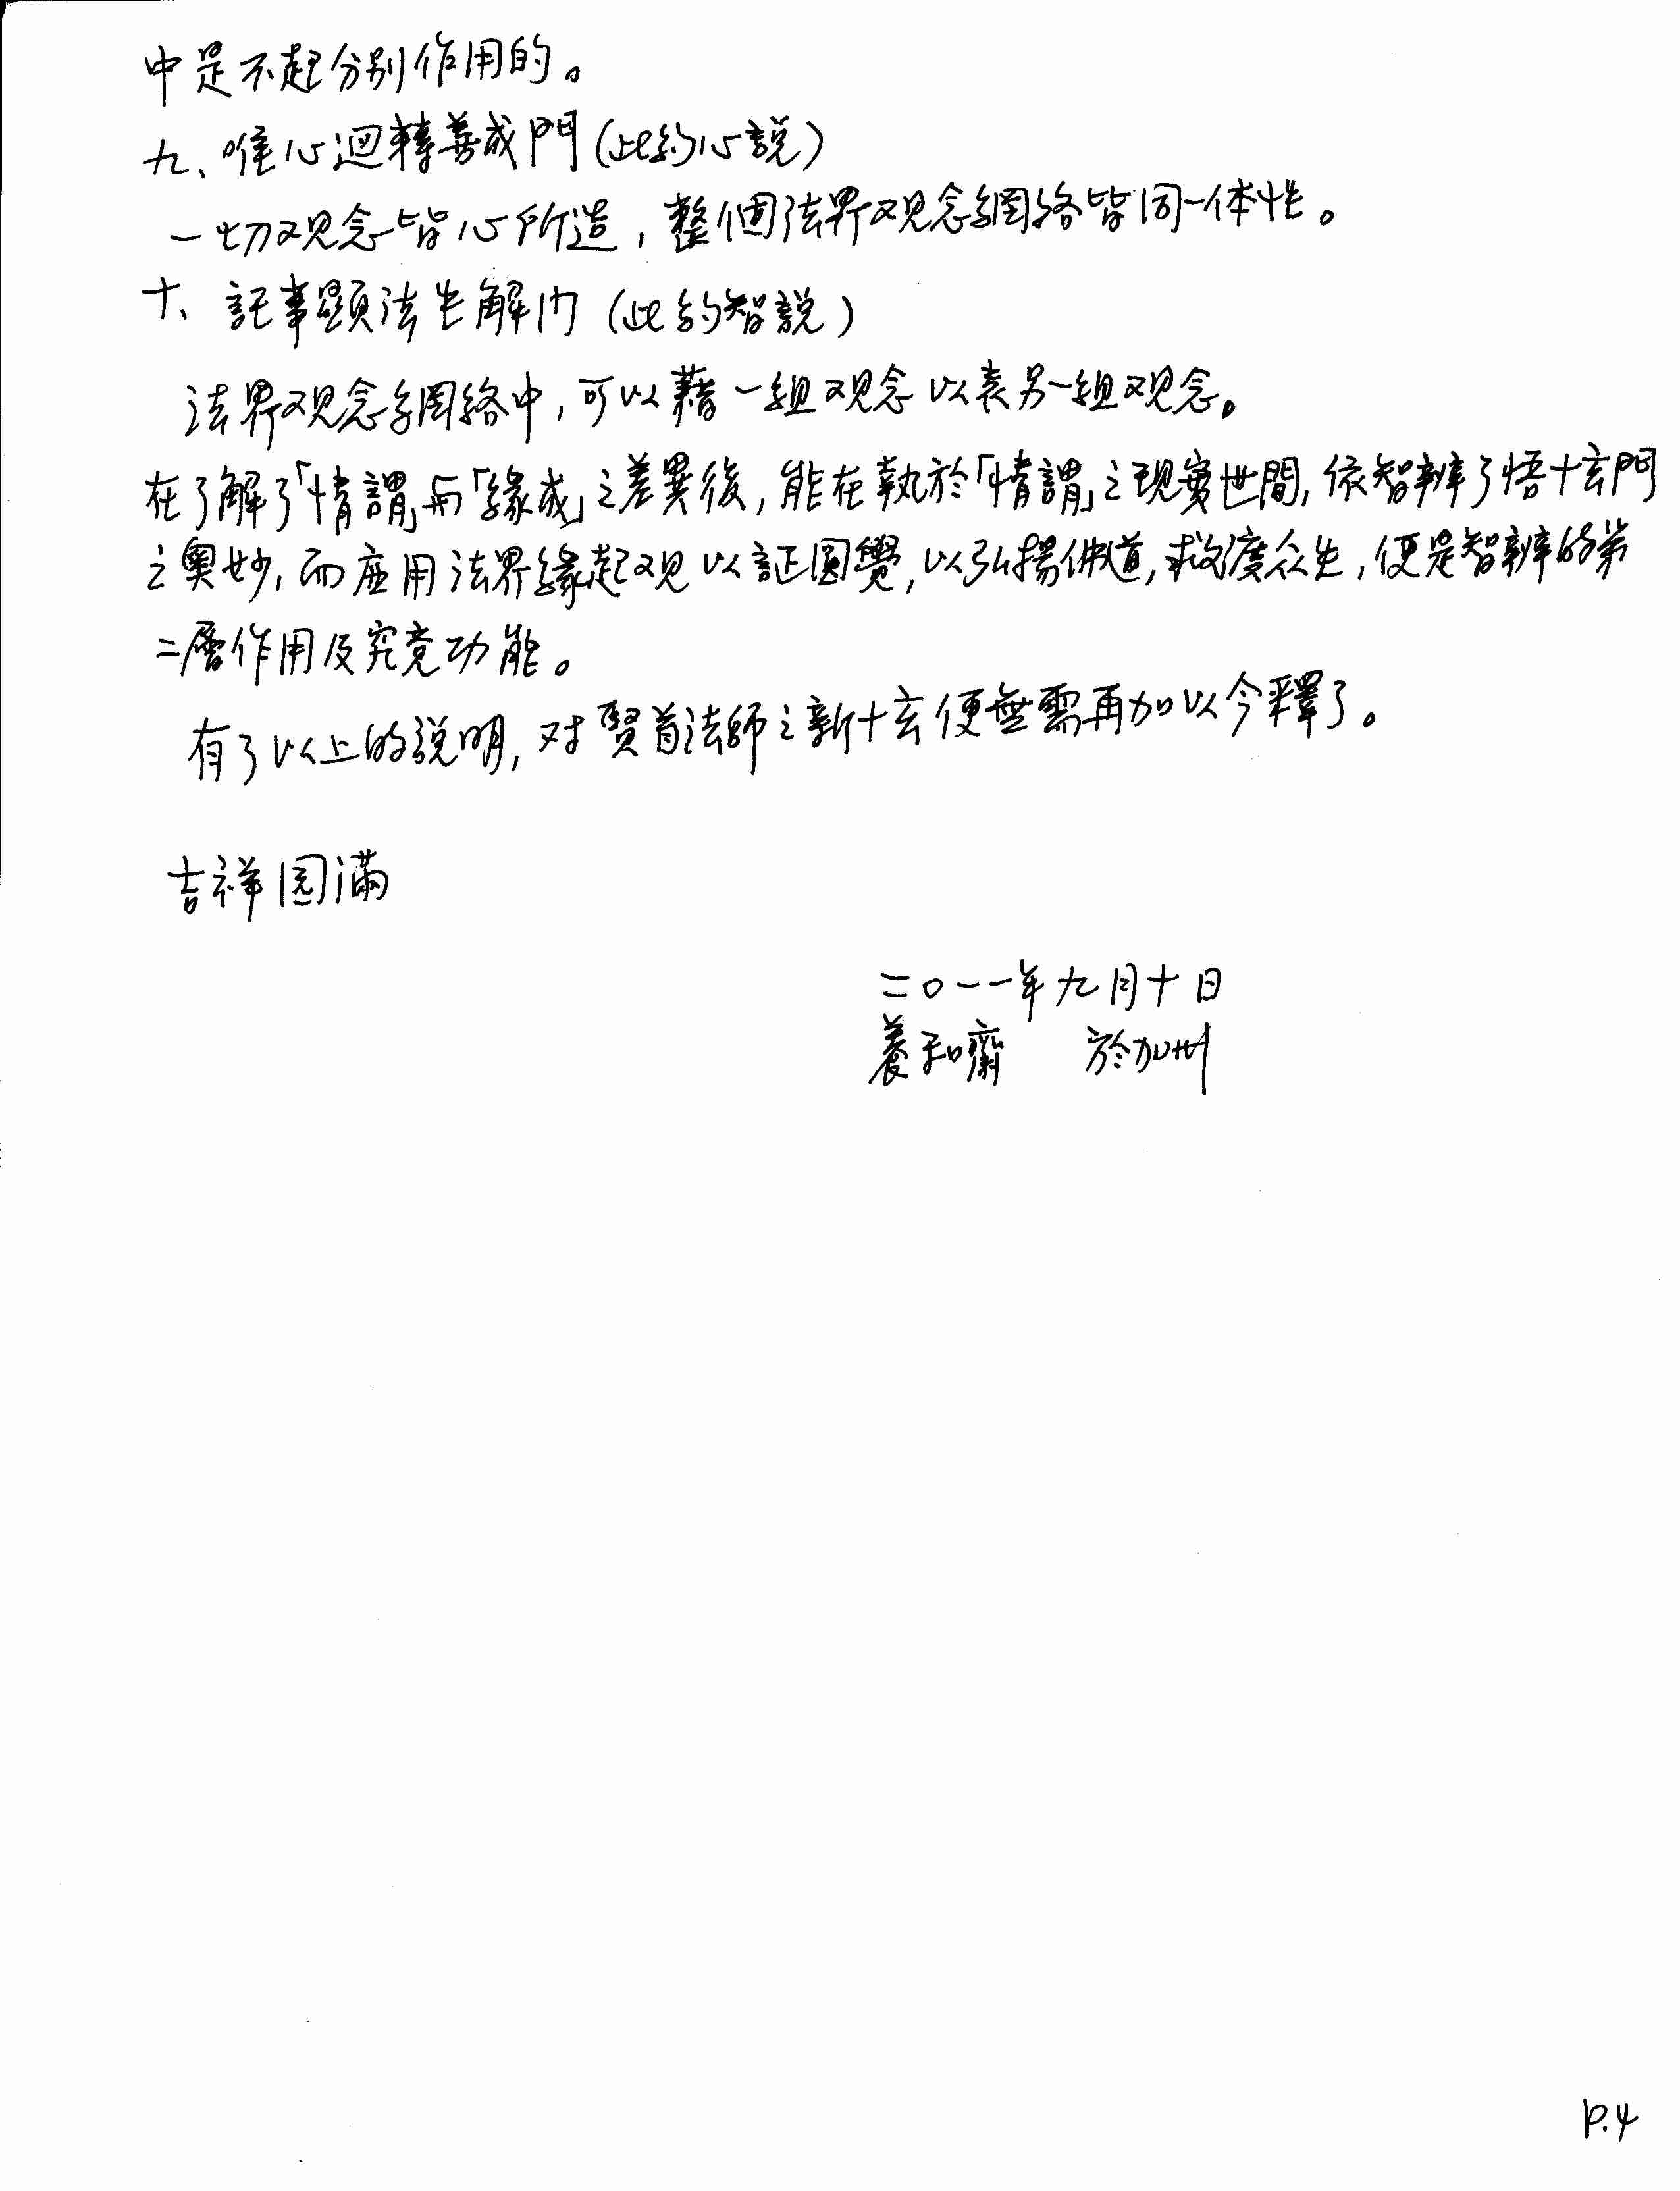 中是不起分別作用的。
九、唯心迴轉善成門(此約心說)
一切观念皆心所造,整個法界观念網络皆同一体性。
十、託事顯法生解门(此約智說)
法界观念網絡中,可以藉一組观念以表另一組观念。
在了解了「情謂」与「緣成」之差異後,能在執於「情謂」之現實世間,依智辨了悟十玄門
之奧妙,而应用法界緣起观以証圓覺,以弘揚佛道,救度众生,便是智辨的第
二層作用及究竟功能。
有了以上的說明,对賢首法師之新十玄便無需再加以今釋了。
吉祥圆滿
二〇一一年九月十日
養和齋 於加州
P.4